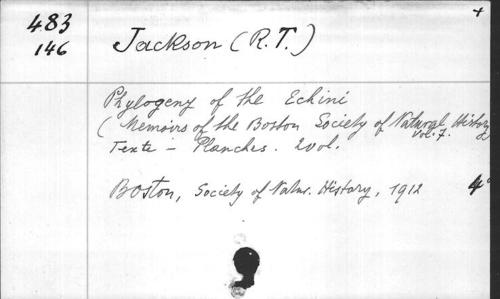 483
146
Jackson (R.T.)
+
Phylogeny of the Echini
(Memoirs of the Boston Society of Natural History
Vol. 7.
Texte - Planches. 2 vol.
Boston, Society of Natur. History, 1912
4°